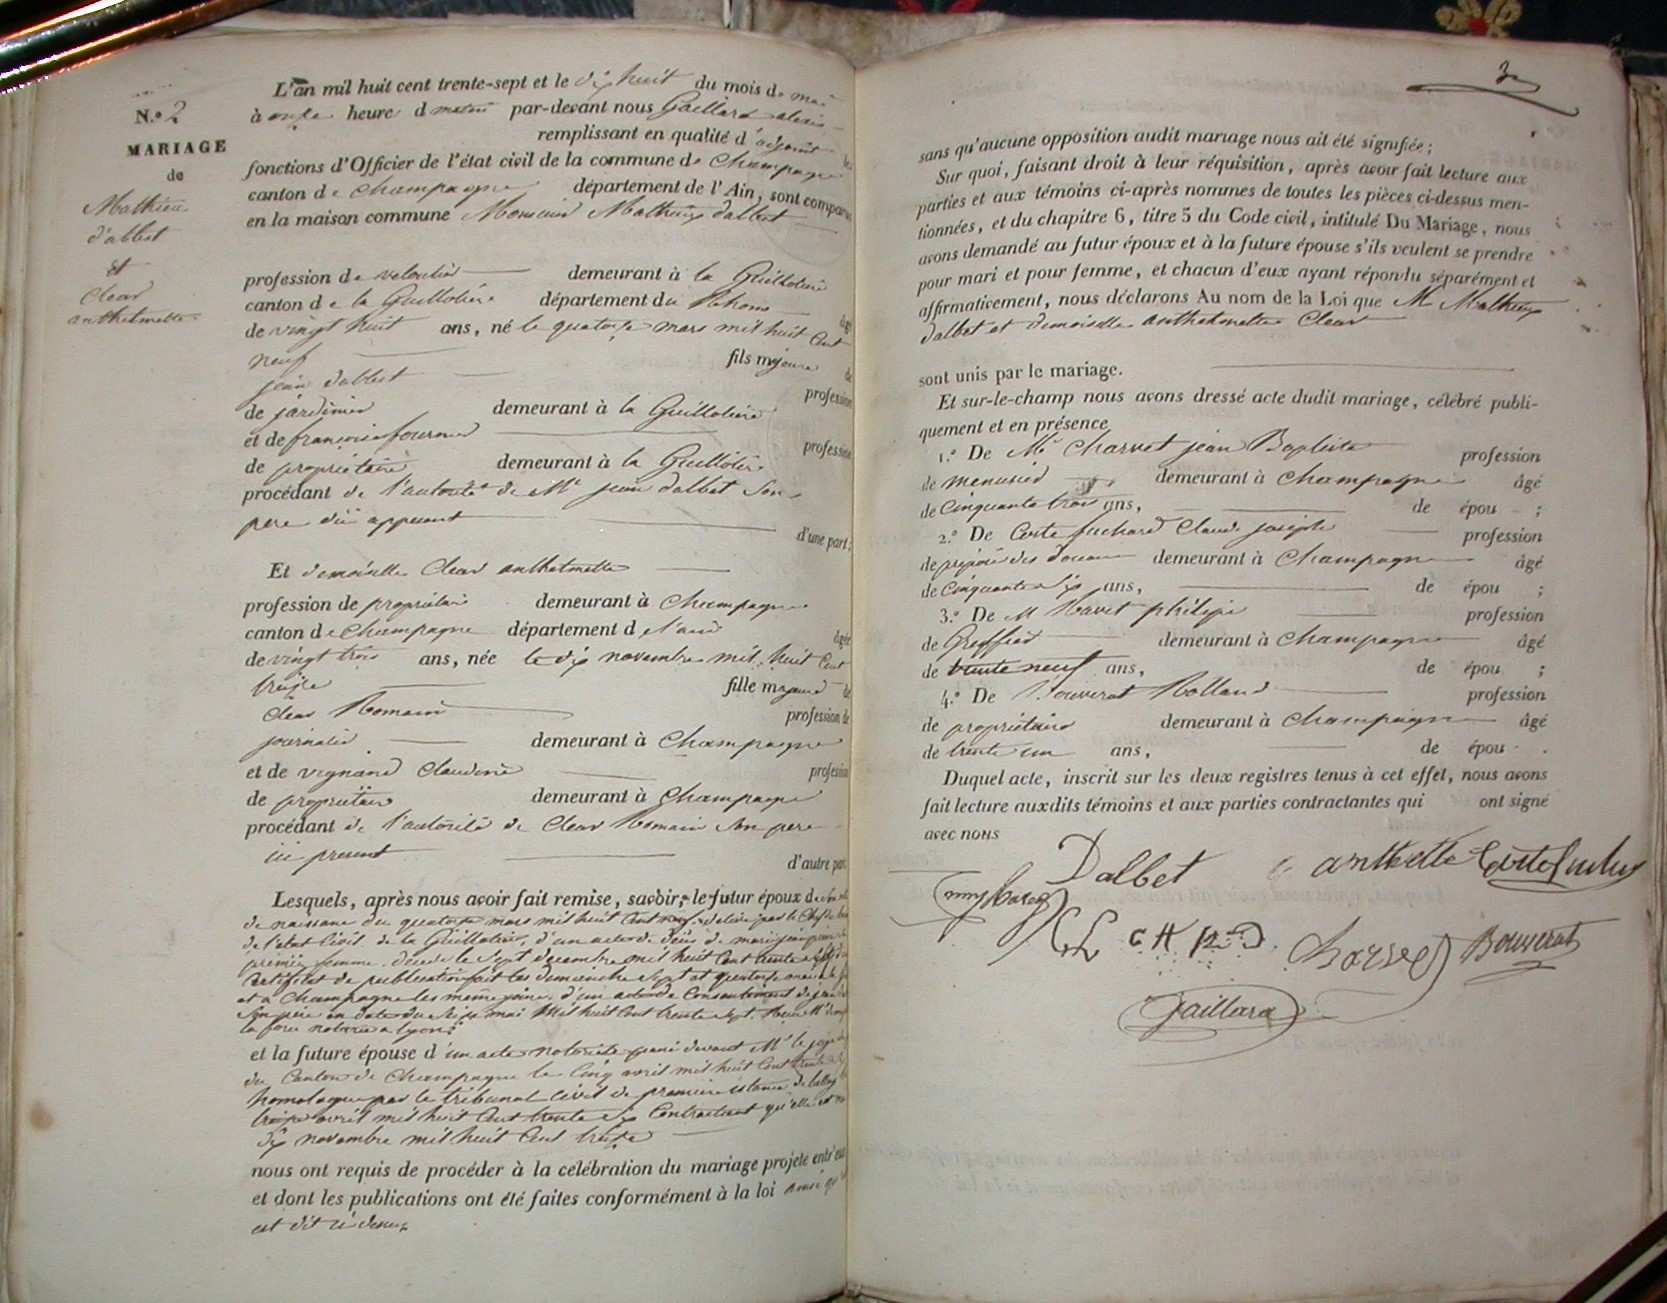 N.o 2
MARIAGE
de
Mathieu
d'albet
et
Clear
anthelmette
L'an mil huit cent trente-sept et le dix huit du mois de mai
à onze heure d matin par-devant nous Gaillard alexis
remplissant en qualité d'adjoint les
fonctions d'Officier de l'état civil de la commune de Champagne
canton de Champagne département de l'Ain, sont comparus
en la maison commune Monsieur Mathieu dalbet
profession de veloutier demeurant à la Guillotière
canton de la Guillotière département du Rhône âgé
de vingt huit ans, né le quatorze mars mil huit Cent
neuf fils majeur de
jean dalbet profession
de jardinier demeurant à la Guillotière
et de françoise fournier profession
de propriétaire demeurant à la Guillotière
procédant de l'autorité de Mr jean dalbet Son
pere d'une part;
Et demoiselle Clear anthelmette
profession de propriétaire demeurant à Champagne
canton de Champagne département de l'ain âgée
de vingt trois ans, née le dix novembre mil huit Cent
treize fille majeure de
Clear Romain profession de
journalier demeurant à Champagne
et de vignand Claudine profession
de propriétaire demeurant à Champagne
procédant de l'autorité de Clear Romain Son pere
ici présent d'autre part
Lesquels, après nous avoir fait remise, savoir; le futur époux de
de naissance du quatorze mars mil huit Cent neuf delivré par le
de l'état Civil de la Guillotière, d'un acte de décès de
première femme décédée le Sept décembre mil huit Cent trente
Certificat de publication fait les dimanche Sept et quatorze mai
et a Champagne les même jour, d'un acte de Consentement de
Son père en date du Seize mai Mil huit Cent trente Sept. Mr
notaire a Lyon
et la future épouse d'un acte notoriété passé devant Mr le juge de
du Canton de Champagne le Cinq avril mil huit Cent trente
homologué par le tribunal Civil de première
treize avril mil huit Cent trente Six qu'elle est
dix novembre mil huit Cent treize
nous ont requis de procéder à la celébration du mariage projeté entr'eux
et dont les publications ont été faites conformément à la loi ainsi qu'il
est dit ci dessus
3
sans qu'aucune opposition audit mariage nous ait été signifiée;
Sur quoi, faisant droit à leur réquisition, après avoir fait lecture aux
parties et aux témoins ci-après nommes de toutes les pièces ci-dessus men-
tionnées, et du chapitre 6, titre 5 du Code civil, intitulé Du Mariage, nous
avons demandé au futur époux et à la future épouse s'ils veulent se prendre
pour mari et pour femme, et chacun d'eux ayant répondu séparément et
affirmativement, nous déclarons Au nom de la Loi que M Mathieu
dalbet et demoiselle anthelmette Clear
sont unis par le mariage.
Et sur-le-champ nous avons dressé acte dudit mariage, célébré publi-
quement et en présence
1.o De Mr Charvet jean Baptiste profession
de menusier demeurant à Champagne âgé
de Cinquante trois ans, de épou ;
2.o De Coste fuchard Claude joseph profession
de préposé des douane demeurant à Champagne âgé
de Cinquante Six ans, de épou ;
3.o De M Ravet philipe profession
de Greffier demeurant à Champagne âgé
de trente neuf ans, de épou ;
4.o De Bouverat Rolland profession
de propriétaire demeurant à Champagne âgé
de trente un ans, de épou .
Duquel acte, inscrit sur les deux registres tenus à cet effet, nous avons
fait lecture auxdits témoins et aux parties contractantes qui ont signé
avec nous
Dalbet
Charvet
Bouverat
Gaillard